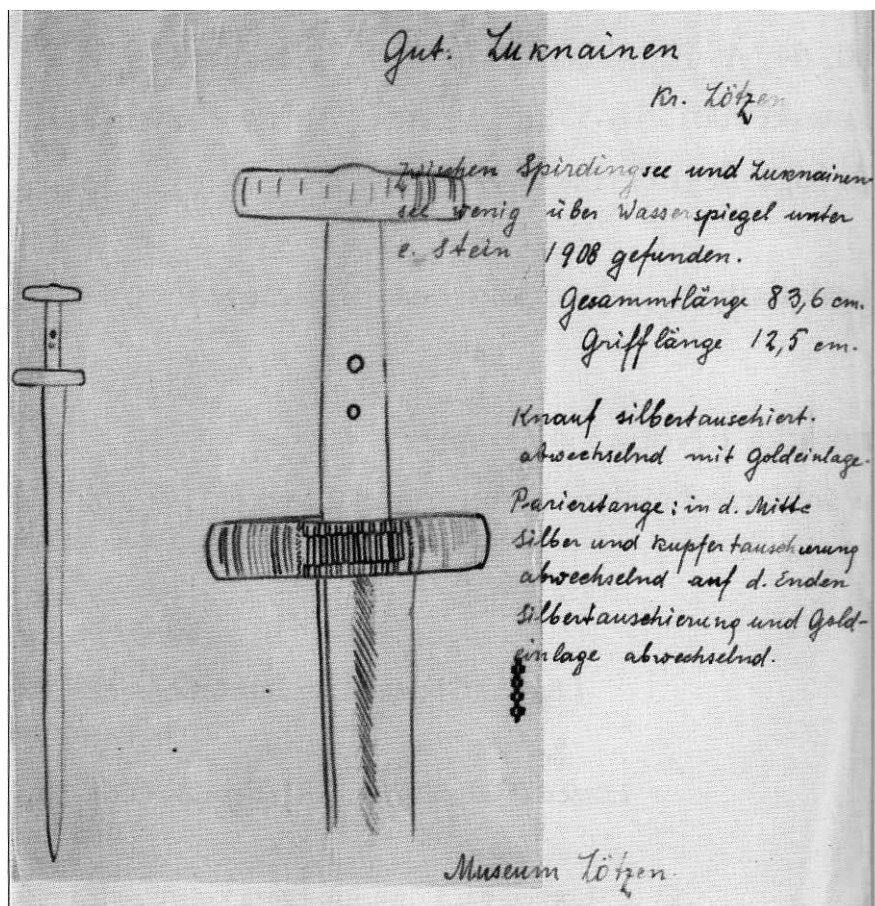 Gut. Luknainen
Kr. Lötzen
Zwischen Spirdingsee und Luknainen-
see wenig über Wasserspiegel unter
e. Stein 1908 gefunden.
Gesammtlänge 83,6 cm.
Grifflänge 12,5 cm.
Knauf silbertauschiert.
abwechselnd mit Goldeinlage.
Parierstange: in d. Mitte
Silber und Kupfertauschierung
abwechselnd auf d. Enden
Silbertauschierung und Gold-
einlage abwechselnd.
Museum Lötzen.